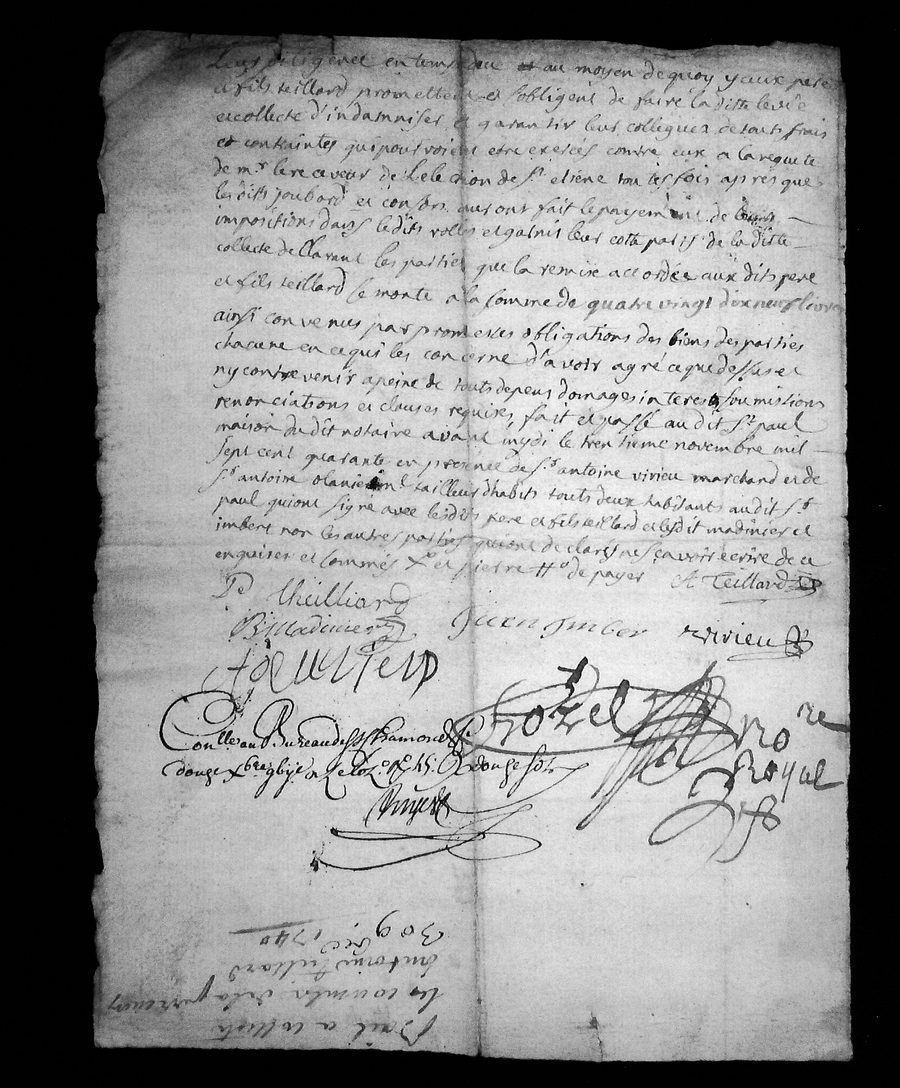 leurs diligence en tems due au moyen de quoy yceux pere
et fils teillard promettent et sobligent de faire la ditte levée
et collecte d'indamniser et garantir leur collegues de touts frais
et contraintes qui pourroient etre exercés contre eux a la requete
de mr. le receveur de l'election de st. etiene toutes fois apres que
les dits joubard et consors auront fait le payement de leurs
impositions dans le dits rolles et garnis leur cotte part de la ditte
collecte declarant les parties que la remise accordée aux dits pere
et fils teillard se monte a la somme de quatre vingt dix neuf livres
ainsi convenus par promesses obligations des biens des parties
chacune en ce qui les concerne d'avoir agré ce que dessus et
ny contrevenir a peine de touts depens domages interest soumissions
renonciations et clauses requises, fait et passé au dit st. paul
maison du dit notaire avant mydi le trentieme novembre mil
sept cent quarante en presence de sr. antoine virieu marchand et de
sr. antoine tailleur d'habits touts deux habitants au dit st.
paul qui ont signé avec les dits pere et fils teillard et les dit madinier et
imbert non les autres parties qui ont declaré ne scavoir ecrire de ce
enquises et sommés
Pe theilliard A Teillard
B Madinier Juen jmber virieu
Crozel
no re
Royal
Conlle au Bureau de St Chamond
douze
30 9bre 1740
Antoine teillard
les consuls de la
Bail a collecte